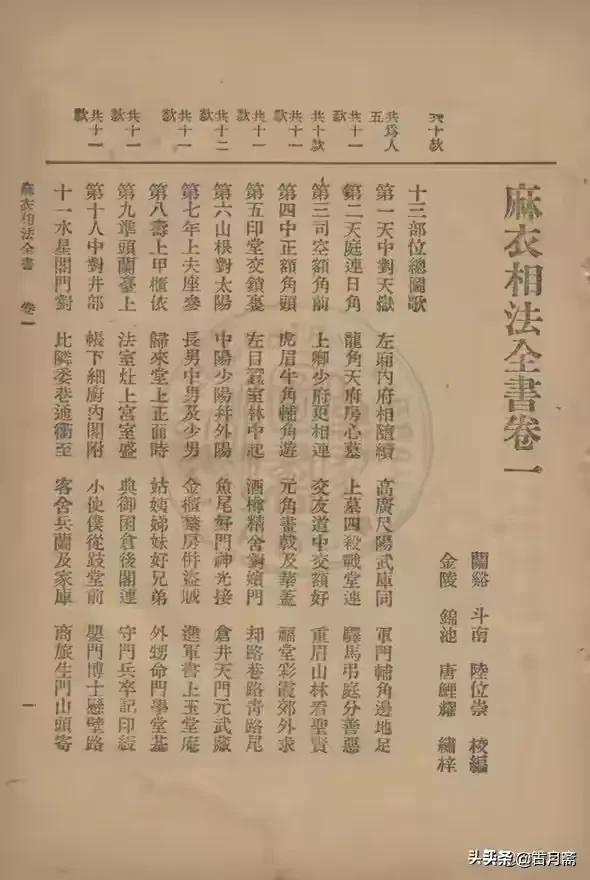 麻衣相法全書卷一
蘭谿 斗南 陸位崇 校編
金陵 錦池 唐鯉耀 繡梓
十三部位總圖歌
共十款
第一天中對天嶽 左廂內府相隨續 高廣尺陽武庫同 軍門輔角邊地足
共為人五
第二天庭連日角 龍角天府房心墓 上墓四殺戰堂連 驛馬弔庭分善惡
共十一款
第三司空額角前 上卿少府更相連 交友道中交額好 重眉山林看聖賢
共十款
第四中正額角頭 虎眉牛角輔角遊 元角斧戟及華蓋 福堂彩霞郊外求
共十一款
第五印堂交鎖裏 左目蠶室林中起 酒樽精舍對嬪門 刼路巷路靑路尾
共十一款
第六山根對太陽 中陽少陽幷外陽 魚尾奸門神光接 倉井天門元武藏
共十二款
第七年上夫座參 長男中男及少男 金櫃禁房併盜賊 遊軍書上玉堂庵
共十一款
第八壽上甲櫃依 歸來堂上正面時 姑姨姊妹好兄弟 外甥命門學堂基
共十一款
第九準頭蘭臺上 法室灶上宮室盛 典御囷倉後閣連 守門兵卒記印綬
共十一款
第十人中對井部 帳下細廚內閣附 小使僕從跂堂前 嬰門博士懸壁路
共十一款
十一水星閣門對 比隣委巷通衢至 客舍兵蘭及家庫 商旅生門山頭寄
麻衣相法全書 卷一 一
头条@苦月斋